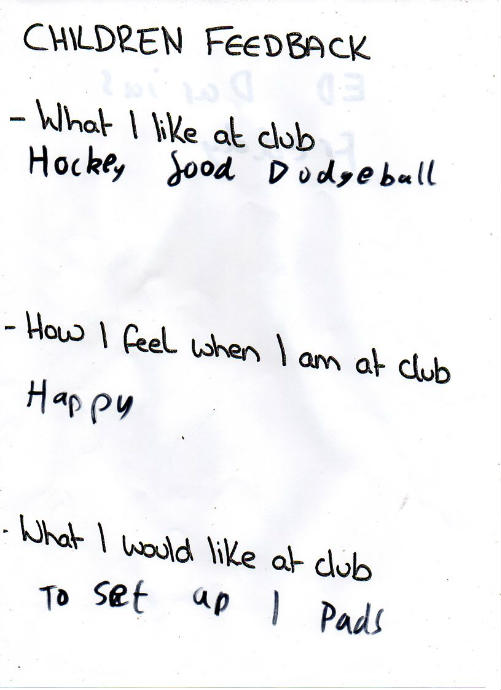 CHILDREN FEEDBACK
- What I like at club
Hockey food Dodgeball
- How I feel when I am at club
Happy
- What I would like at club
To set up I Pads